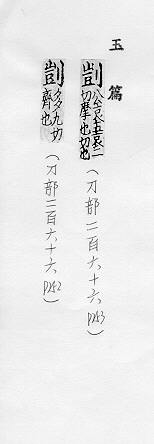 玉篇
剴公哀五哀二切摩也切也
（刀部二百六十六 P253）
剬多丸切齊也
（刀部二百六十六 P252）